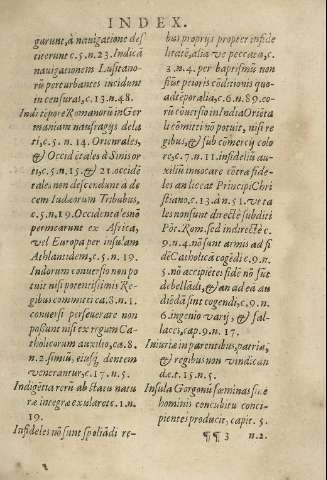 INDEX.
gurunt, à nauigatione des
titerunt c.5.n.23. Indicã
nauigationem Lusitano-
rũ perturbantes incidunt
in censuras, c.13.n.48.
Indi tẽpore Romanorũ in Ger
maniam naufragys dela
ti, c.5.n.14. Orientales,
& Occidẽtales à Sinis or
ti, c.5.n.15. & 21. occidẽ
tales non descendunt à de
cem Iudæorum Tribubus,
c.5.n.19. Occidentales nõ
permearunt ex Africa,
vel Europa per insulam
Athlantidem, c.5.n.19.
Indorum conuersio non po
tuit nisi potentissimis Re-
gibus committi ca.8.n.1.
conuersi perseuerare non
possunt nisi ex regum Ca-
tholicorum auxilio, ca.8.
n.2. simiũ, eiusq; dentem
venerantur, c.17.n.5.
Indigesta rerũ ab statu natu
ræ integræ exularet c.1.n.
19.
Infideles nõ sunt spoliãdi re-
bus proprys propter infide
litatẽ, alia ve peccata, c.
3.n.4. per baptismũ non
fiũt petioris cõditionis quo
ad tẽporalia, c.6.n.89. eo-
rũ cõuersio in India Oriẽta
li cõmitti nõ potuit, nisi re
gibus, & sub cõmercij colo
re, c.7.n.11. infideliũ au-
xiliũ inuocare cõtra fide-
les an liceat Principi Chri
stiano, c.13. à n.51. ve ta
les non sunt directè subditi
Põt. Rom. sed indirectè c.
9.n.4. nõ sunt armis ad fi
dẽ Catholicã cogẽdi c.9.n.
5. nõ acceptẽtes fidẽ nõ sũt
debelladi, & an ad ea au
diẽdã sint cogendi, c.9.n.
6. ingenio varij, & fal-
laces, cap.9.n.17.
Iniuriæ in parentibus, patria,
& regibus non vindican
dæ. c.15.n.5.
Insula Gorgonũ fæminas si e
hominis concubitu conci-
pientes producit, capit. 5.
¶¶ 3 n.2.